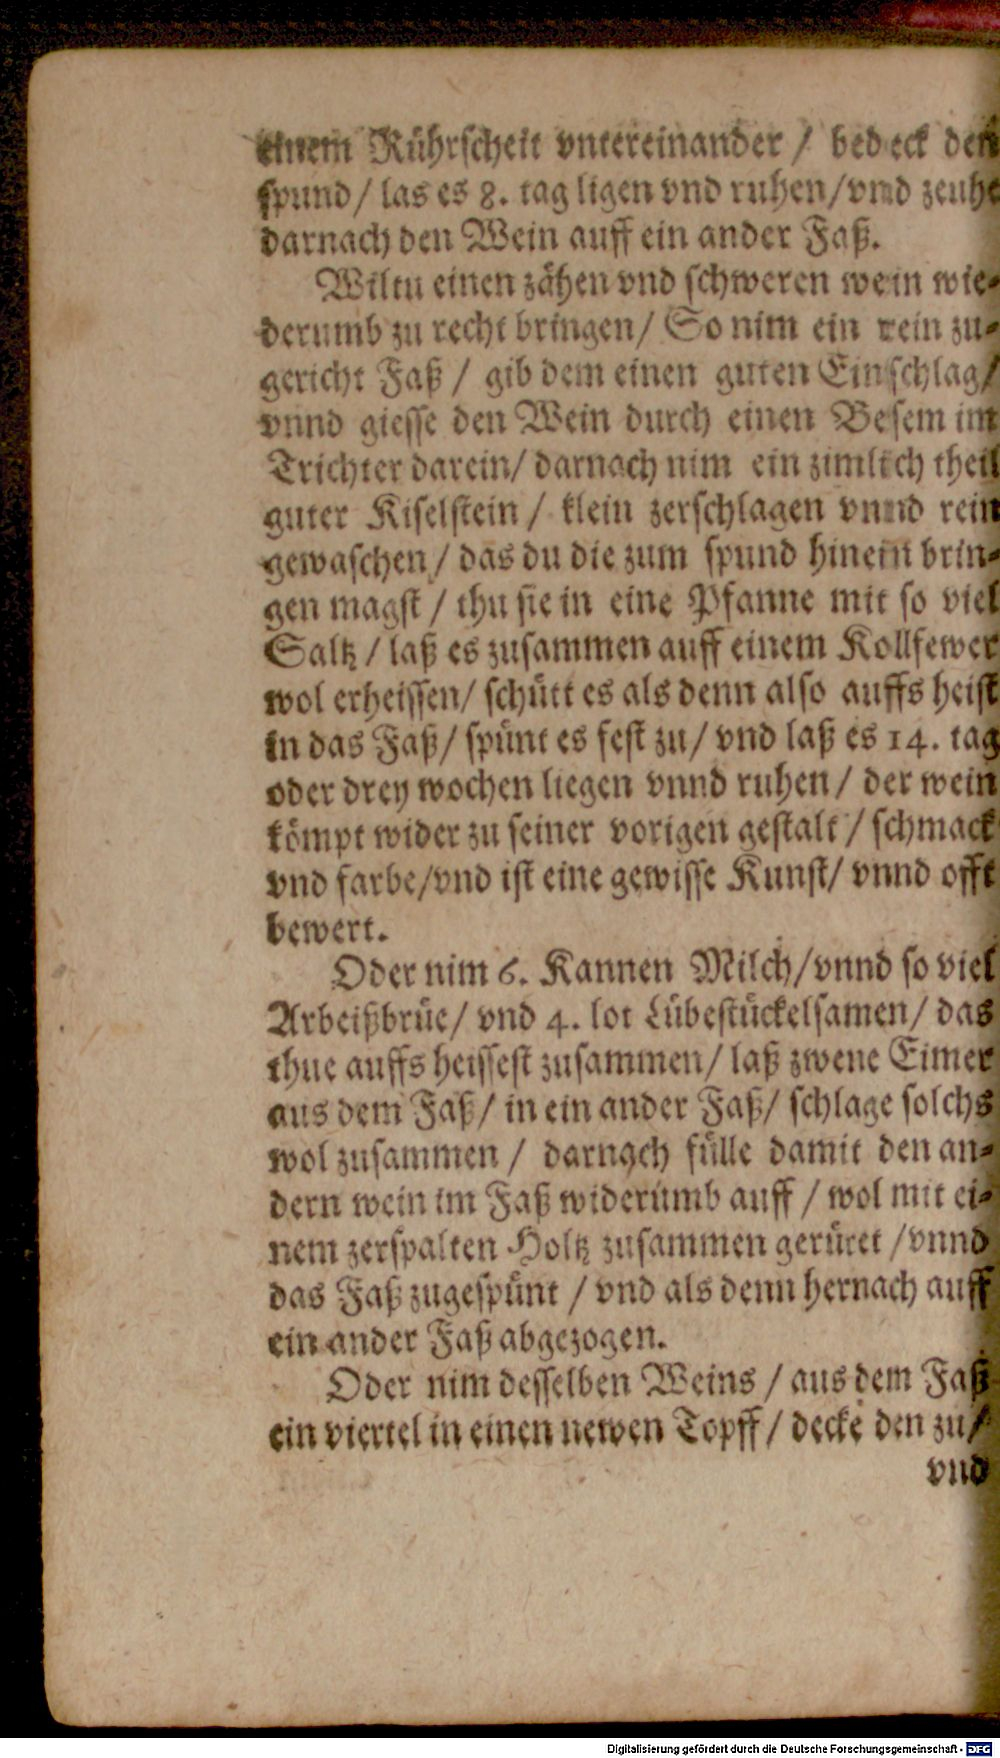 einem Rührscheit vntereinander / bedeck den
spund / las es 8. tag ligen vnd ruhen / vnd zeuhe
darnach den Wein auff ein ander Faß.
Wiltu einen zähen vnd schweren wein wie-
derumb zu recht bringen / So nim ein rein zu-
gericht Faß / gib dem einen guten Einschlag /
vnnd giesse den Wein durch einen Besem im
Trichter darein / darnach nim ein zimlich theil
guter Kiselstein / klein zerschlagen vnnd rein
gewaschen / das du die zum spund hinein brin-
gen magst / thu sie in eine Pfanne mit so viel
Saltz / laß es zusammen auff einem Kollfewer
wol erheissen / schütt es als denn also auffs heist
in das Faß / spünt es fest zu / vnd laß es 14. tag
oder drey wochen liegen vnnd ruhen / der wein
kömpt wider zu seiner vorigen gestalt / schmack
vnd farbe / vnd ist eine gewisse Kunst / vnnd offt
bewert.
Oder nim 6. Kannen Milch / vnnd so viel
Arbeißbrüe / vnd 4. lot Lübestückelsamen / das
thue auffs heissest zusammen / laß zwene Eimer
aus dem Faß / in ein ander Faß / schlage solchs
wol zusammen / darnach fülle damit den an-
dern wein im Faß widerumb auff / wol mit ei-
nem zerspalten Holtz zusammen gerüret / vnnd
das Faß zugespünt / vnd als denn hernach auff
ein ander Faß abgezogen.
Oder nim desselben Weins / aus dem Faß
ein viertel in einen newen Topff / decke den zu /
vnd
Digitalisierung gefördert durch die Deutsche Forschungsgemeinschaft - DFG